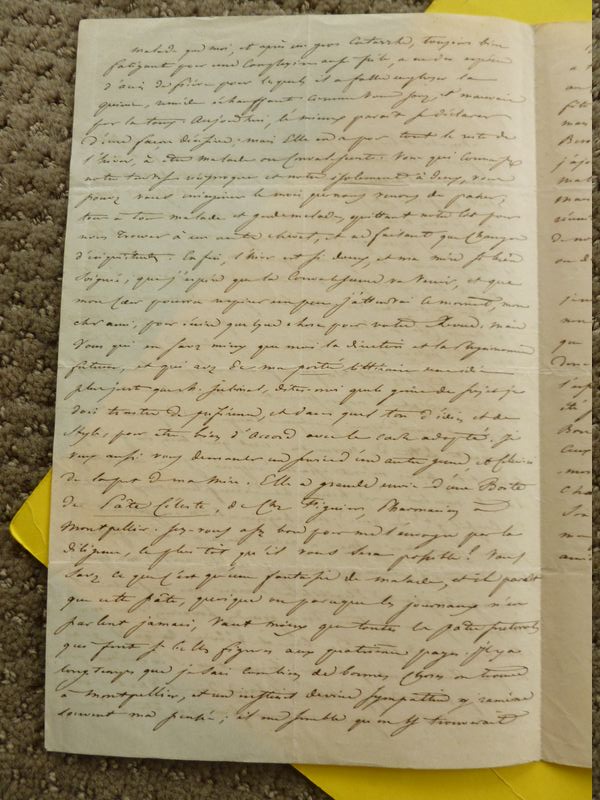 malade que moi, et après un gros Catarrhe, toujours bien
fatigant pour une Complexion aussi frêle, a eu des espèces
d'accès de fièvre pour lesquels il a fallu employer la
quinine, remède échauffant comme Vous savez et mauvais
pour la toux. Aujourd'hui, le mieux paraît se déclarer
d'une façon décisive; mais Elle en a pour tout le reste de
l'hiver, à être malade ou Convalescente. Vous qui connaissez
notre tendresse réciproque et notre isolement à deux, vous
pouvez vous imaginer le mois que nous venons de passer,
tour à tour malade et garde-malade, quittant notre lit pour
nous trouver à un autre chevet, et ne faisant que changer
d'inquiétudes. Enfin, l'hiver est si doux, et ma mère si bien
soignée, que j'espère que la Convalescence va venir, et que
mon Cœur pourra respirer un peu. J'attendrai ce moment, mon
cher ami, pour écrire quelque chose pour votre Revue. Mais
Vous qui en savez mieux que moi la direction et la
future, et qui avez de ma portée littéraire une idée
plus juste que M. Jubinal, dites-moi quel genre de sujet je
dois traiter de préférence, et dans quel ton d'idées et de
style, pour être bien d'accord avec le cadre adopté. Je
veux aussi vous demander un service d'un autre genre, et
de la part de ma Mère. Elle a grande envie d'une Boîte
de Pâte Céleste, de chez Figuier, Pharmacien à
Montpellier. Soyez-vous assez bon pour me l'envoyer par la
diligence, le plus tôt qu'il vous sera possible! Vous
savez ce que c'est qu'une fantaisie de malade, et il paraît
que cette pâte, quoique ou parceque les journaux n'en
parlent jamais, vaut mieux que toutes les pâtes pectorales
qui font si belles figures aux quatrièmes pages. Il y a
longtemps que je sais combien de bonnes choses on trouve
à Montpellier, et un instinct de sympathie y ramène
souvent ma pensée; il me semble qu'on y trouverait